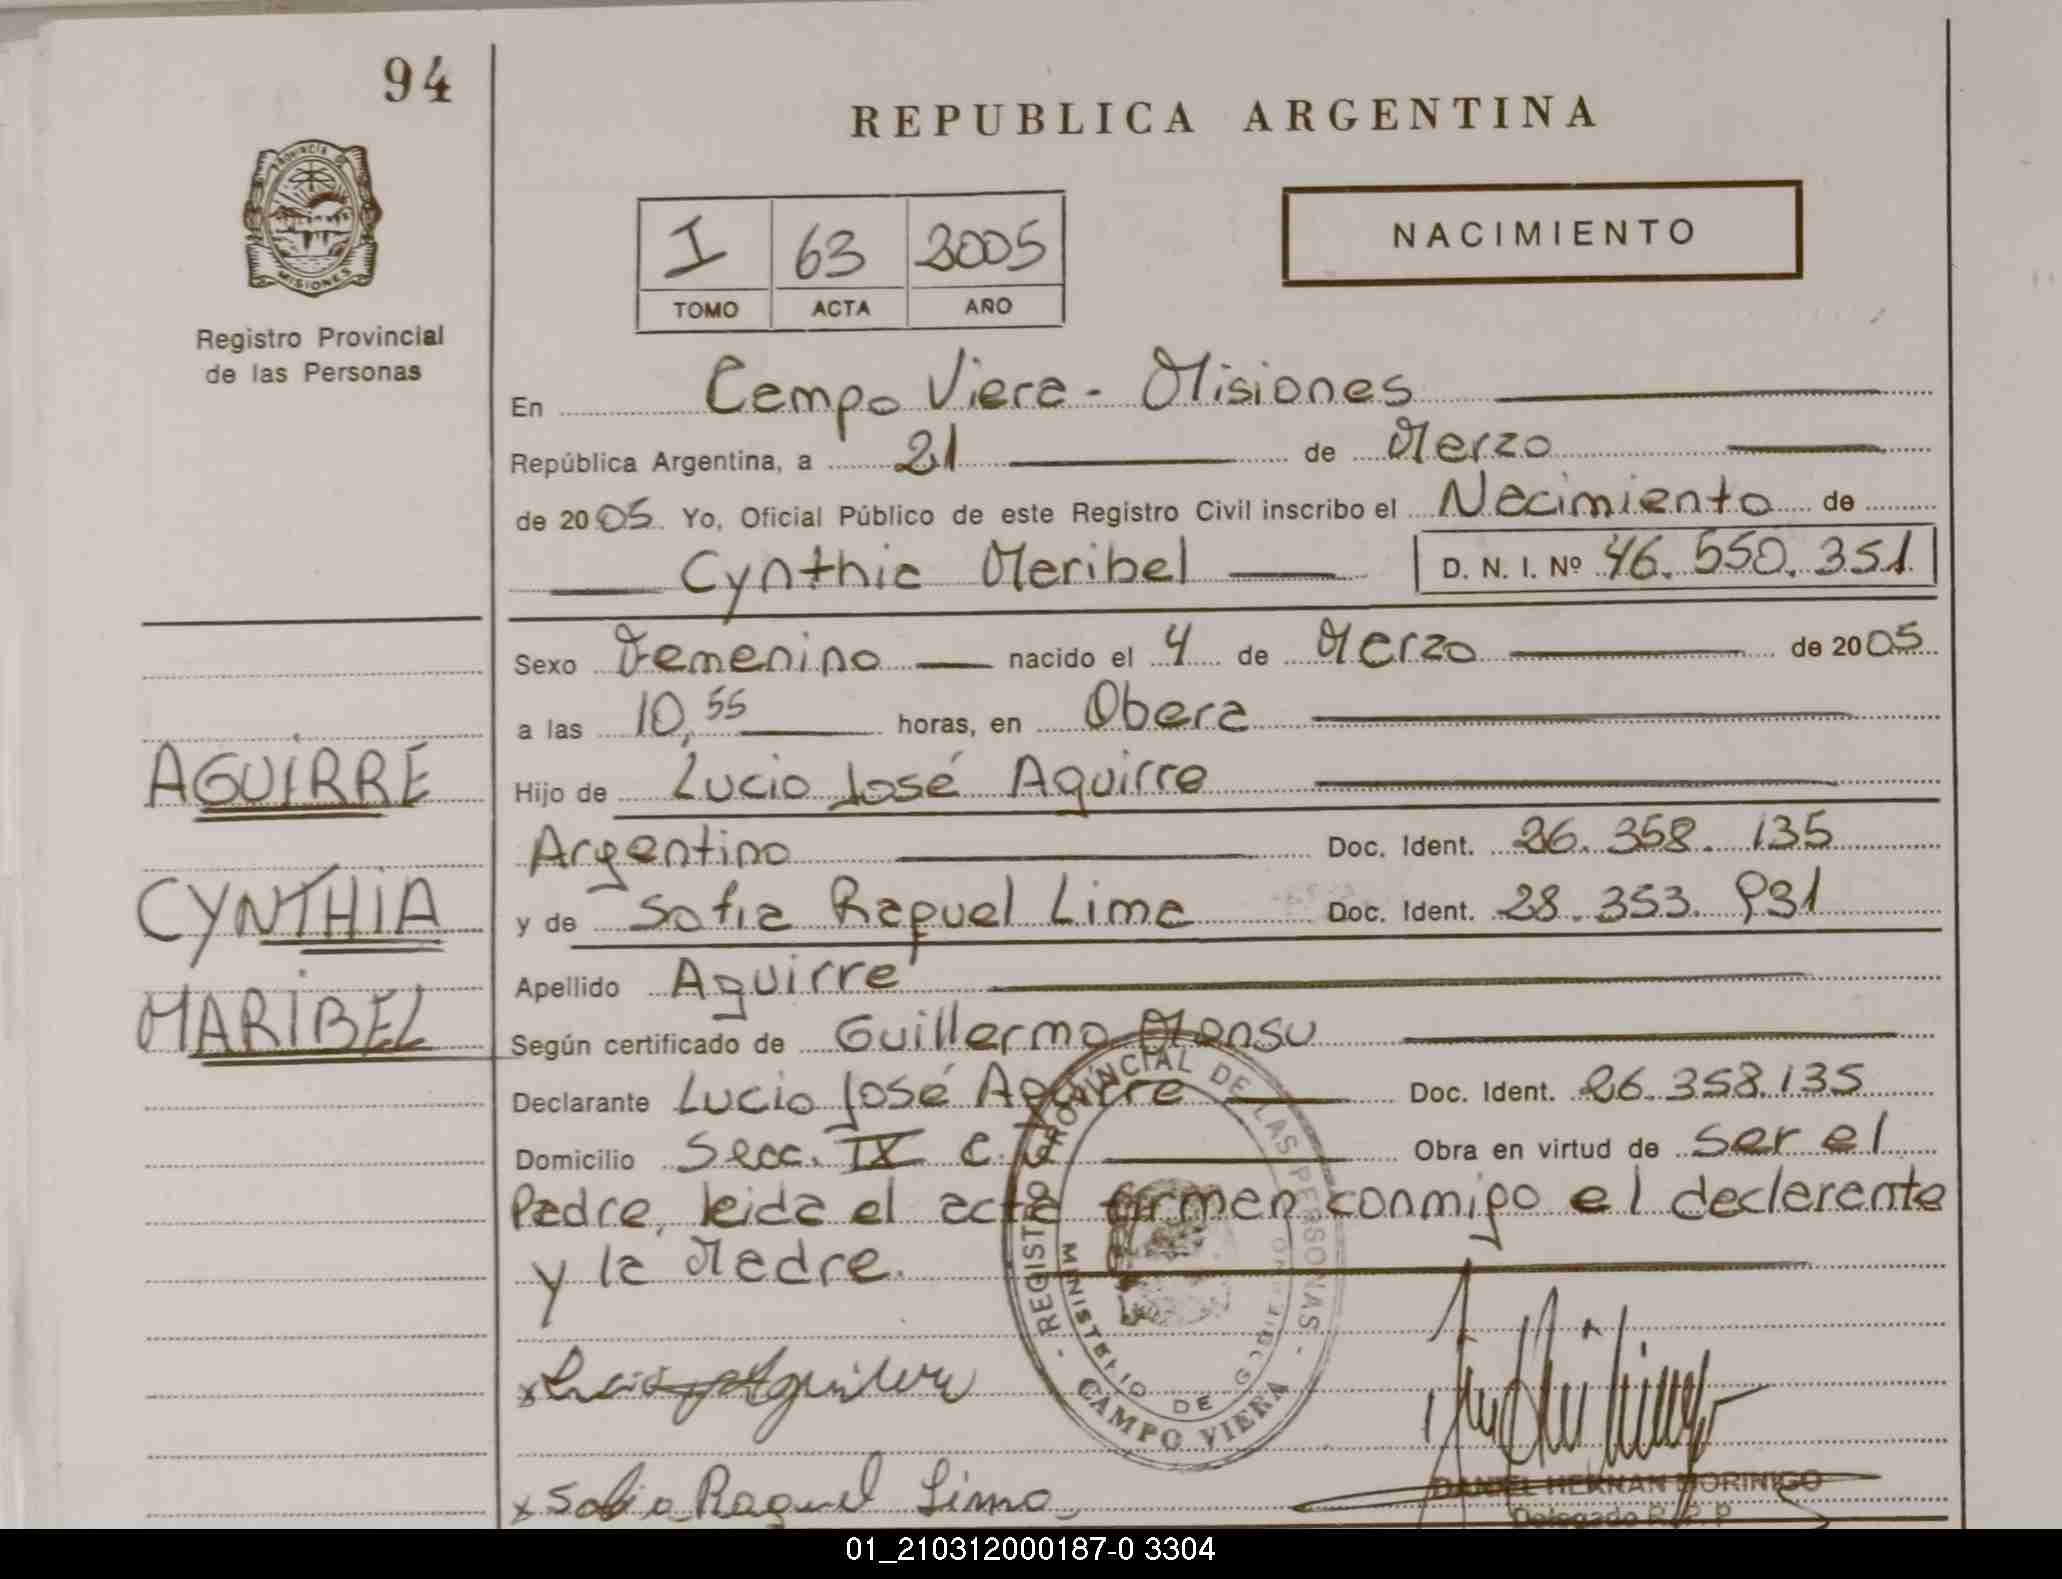 94
REPUBLICA ARGENTINA
PROVINCIA DE
MISIONES
Registro Provincial
de las Personas
I 63 2005
TOMO ACTA AÑO
NACIMIENTO
En Campo Viera - Misiones
República Argentina, a 21 de Marzo
de 2005 Yo, Oficial Público de este Registro Civil inscribo el Nacimiento de
Cynthia Maribel D. N. I. Nº 46.550.351
Sexo Femenino nacido el 4 de Marzo de 2005
a las 10,55 horas, en Obera
AGUIRRE
Hijo de Lucio José Aguirre
Argentino Doc. Ident. 26.358.135
CYNTHIA
y de Sofia Raquel Lima Doc. Ident. 28.353.931
Apellido Aguirre
MARIBEL
Según certificado de Guillermo Mansu
Declarante Lucio José Aguirre Doc. Ident. 26.358.135
Domicilio Secc. IX C.V Obra en virtud de ser el
Padre, leida el acta firman conmigo el declarante
y la Madre.
REGISTRO PROVINCIAL DE LAS PERSONAS
MINISTERIO DE GOBIERNO
CAMPO VIERA
x Lucio Aguirre
x Sofia Raquel Lima
DANIEL HERNAN MORINIGO
Delegado R.P.P
01_210312000187-0 3304